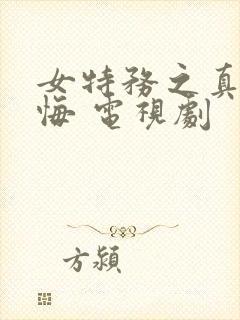 女特務之真
悔 電視劇
方潁